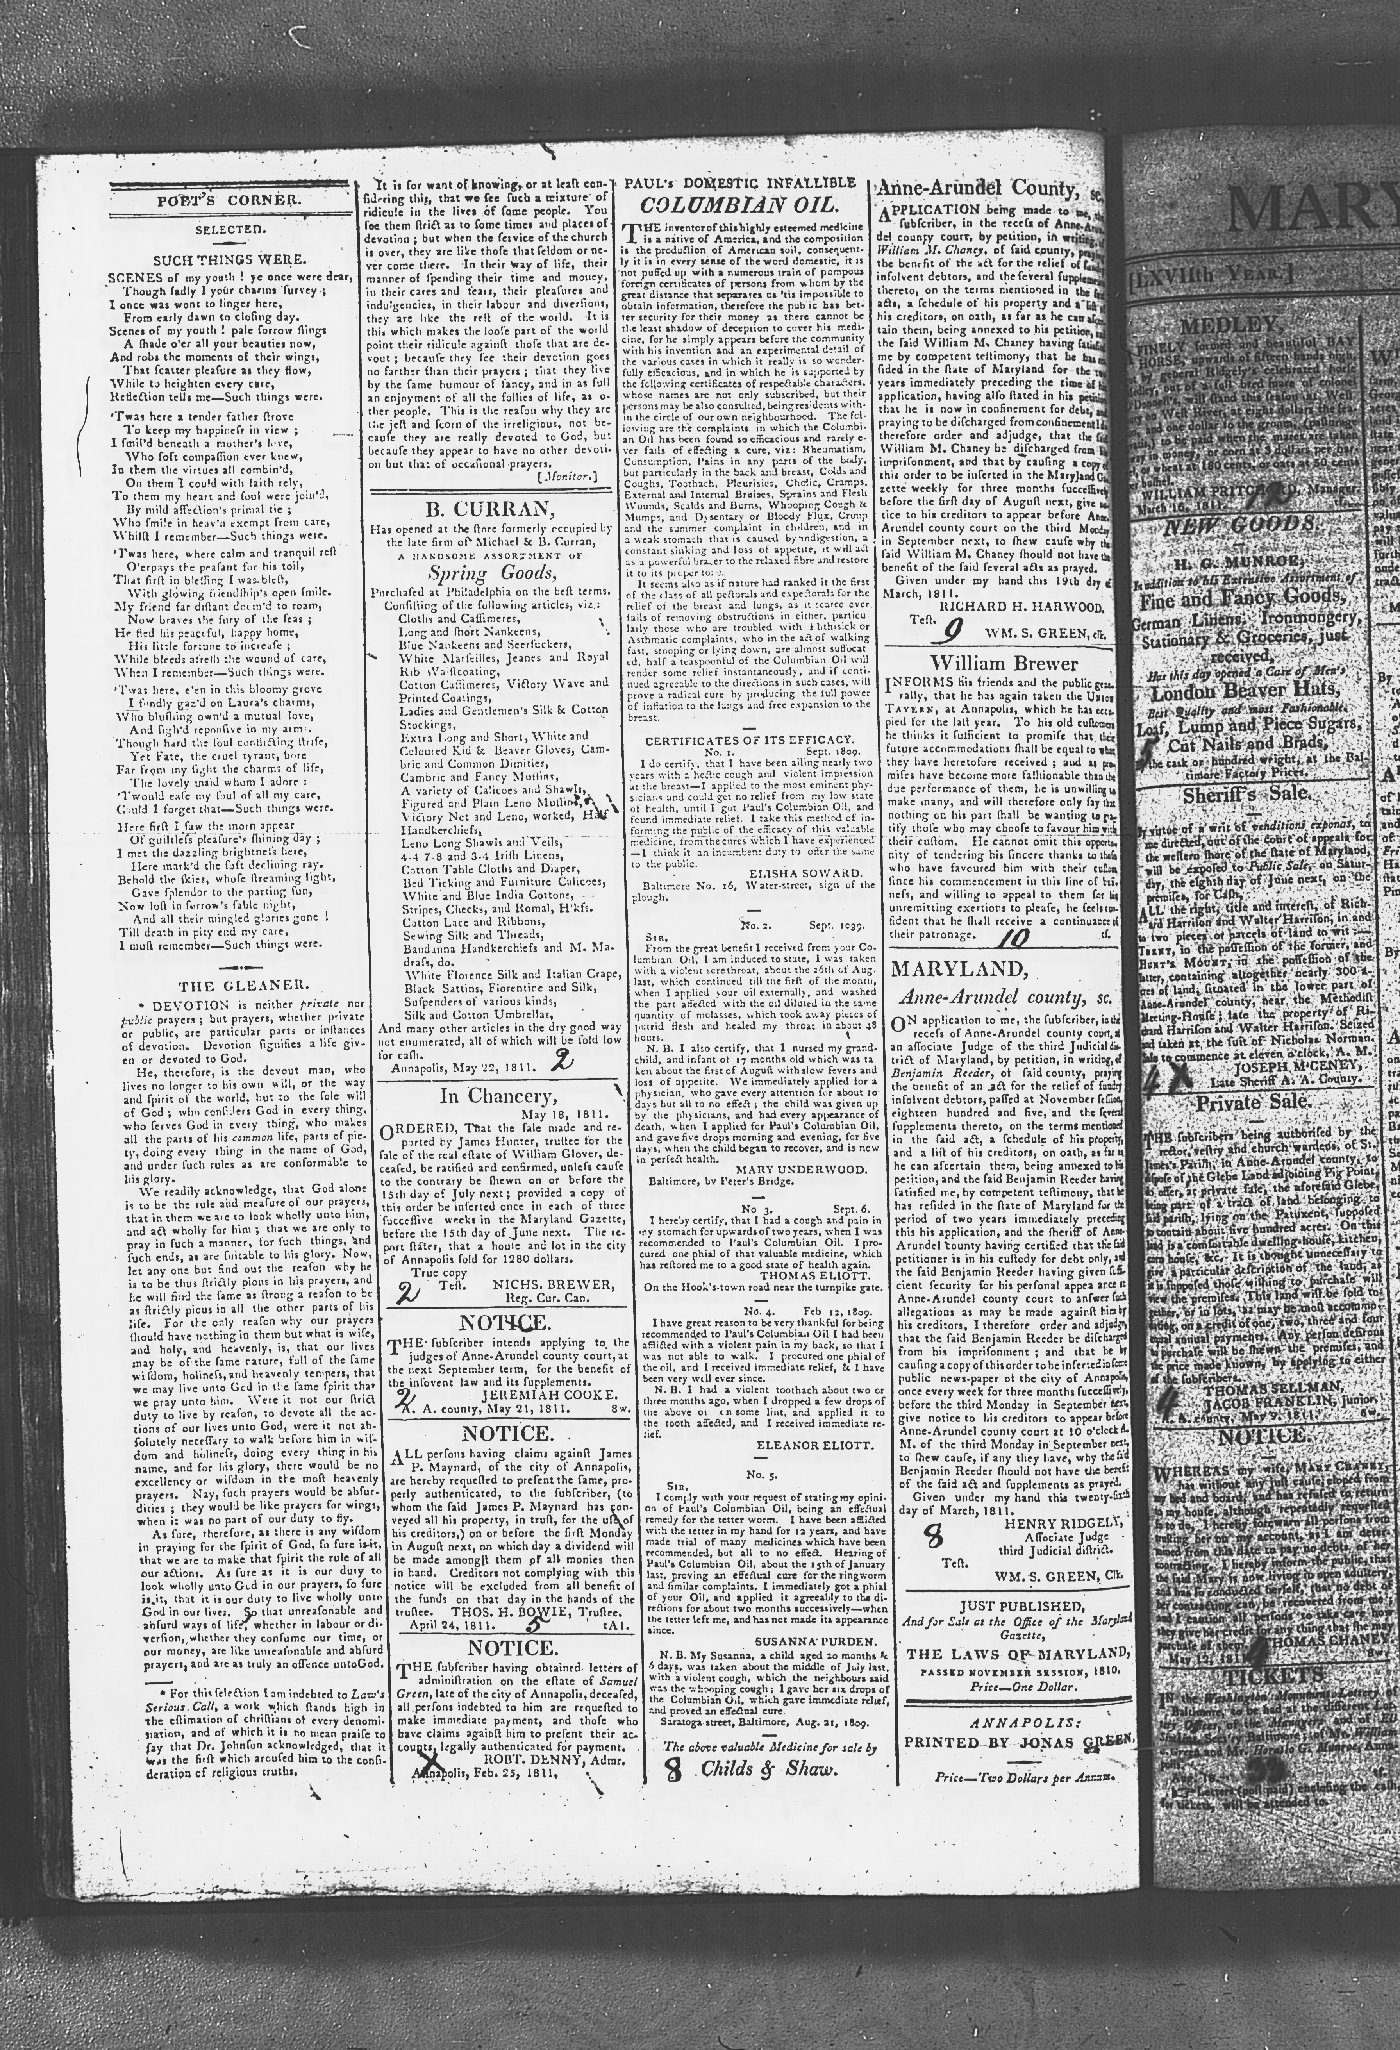 POET'S CORNER.
SELECTED.
SUCH THINGS WERE.
SCENES of my youth ! ye once were dear,
Though sadly I your charms survey ;
I once was wont to linger here,
From early dawn to closing day.
Scenes of my youth ! pale sorrow flings
A shade o'er all your beauties now,
And robs the moments of their wings,
That scatter pleasure as they flow,
While to heighten every care,
Reflection tells me—Such things were.
'Twas here a tender father strove
To keep my happiness in view ;
I smil'd beneath a mother's love,
Who soft compassion ever knew,
In them the virtues all combin'd,
On them I could with faith rely,
To them my heart and soul were join'd,
By mild affection's primal tie ;
Who smile in heav'n exempt from care,
Whilst I remember—Such things were.
'Twas here, where calm and tranquil rest
O'erpays the peasant for his toil,
That first in blessing I was blest,
With glowing friendship's open smile.
My friend far distant doom'd to roam,
Now braves the fury of the seas ;
He fled his peaceful, happy home,
His little fortune to increase ;
While bleeds afresh the wound of care,
When I remember—Such things were.
'Twas here, e'en in this bloomy grove
I fondly gaz'd on Laura's charms,
Who blushing own'd a mutual love,
And sigh'd reponsive in my arms.
Though hard the soul conflicting strife,
Yet Fate, the cruel tyrant, bore
Far from my sight the charms of life,
The lovely maid whom I adore :
'Twould ease my soul of all my care,
Could I forget that—Such things were.
Here first I saw the morn appear
Of guiltless pleasure's shining day ;
I met the dazzling brightness here,
Here mark'd the soft declining ray.
Behold the skies, whose streaming light,
Gave splendor to the parting sun,
Now lost in sorrow's sable night,
And all their mingled glories gone !
Till death in pity end my care,
I must remember—Such things were.
THE GLEANER.
* DEVOTION is neither private nor
public prayers ; but prayers, whether private
or public, are particular parts or instances
of devotion. Devotion signifies a life giv-
en or devoted to God.
He, therefore, is the devout man, who
lives no longer to his own will, or the way
and spirit of the world, but to the sole will
of God ; who considers God in every thing,
who serves God in every thing, who makes
all the parts of his common life, parts of pie-
ty, doing every thing in the name of God,
and under such rules as are conformable to
his glory.
We readily acknowledge, that God alone
is to be the rule and measure of our prayers,
that in them we are to look wholly unto him,
and act wholly for him ; that we are only to
pray in such a manner, for such things, and
such ends, as are suitable to his glory. Now,
let any one but find out the reason why he
is to be thus strictly pious in his prayers, and
he will find the same as strong a reason to be
as strictly pious in all the other parts of his
life. For the only reason why our prayers
should have nothing in them but what is wise,
and holy, and heavenly, is, that our lives
may be of the same nature, full of the same
wisdom, holiness, and heavenly tempers, that
we may live unto God in the same spirit that
we pray unto him. Were it not our strict
duty to live by reason, to devote all the ac-
tions of our lives unto God, were it not ab-
solutely necessary to walk before him in wis-
dom and holiness, doing every thing in his
name, and for his glory, there would be no
excellency or wisdom in the most heavenly
prayers. Nay, such prayers would be absur-
dities ; they would be like prayers for wings,
when it was no part of our duty to fly.
As sure, therefore, as there is any wisdom
in praying for the spirit of God, so sure is it,
that we are to make that spirit the rule of all
our actions. As sure as it is our duty to
look wholly unto God in our prayers, so sure
is it, that it is our duty to live wholly unto
God in our lives. So that unreasonable and
absurd ways of life, whether in labour or di-
version, whether they consume our time, or
our money, are like unreasonable and absurd
prayers, and are as truly an offence unto God.
* For this selection I am indebted to Law's
Serious Call, a work which stands high in
the estimation of christians of every denomi-
nation, and of which it is no mean praise to
say that Dr. Johnson acknowledged, that it
was the first which aroused him to the consi-
deration of religious truths.
It is for want of knowing, or at least con-
sidering this, that we see such a mixture of
ridicule in the lives of some people. You
see them strict as to some times and places of
devotion ; but when the service of the church
is over, they are like those that seldom or ne-
ver come there. In their way of life, their
manner of spending their time and money,
in their cares and fears, their pleasures and
indulgencies, in their labour and diversions,
they are like the rest of the world. It is
this which makes the loose part of the world
point their ridicule against those that are de-
vout ; because they see their devotion goes
no farther than their prayers ; that they live
by the same humour of fancy, and in as full
an enjoyment of all the follies of life, as o-
ther people. This is the reason why they are
the jest and scorn of the irreligious, not be-
cause they are really devoted to God, but
because they appear to have no other devoti-
on but that of occasional prayers.
[Monitor.]
B. CURRAN,
Has opened at the store formerly occupied by
the late firm of Michael & B. Curran,
A HANDSOME ASSORTMENT OF
Spring Goods,
Purchased at Philadelphia on the best terms.
Consisting of the following articles, viz.:
Cloths and Cassimeres,
Long and short Nankeens,
Blue Nankeens and Seersuckers,
White Marseilles, Jeanes and Royal
Rib Waistcoating,
Cotton Cassimeres, Victory Wave and
Printed Coatings,
Ladies and Gentlemen's Silk & Cotton
Stockings,
Extra Long and Short, White and
Coloured Kid & Beaver Gloves, Cam-
bric and Common Dimities,
Cambric and Fancy Muslins,
A variety of Calicoes and Shawls,
Figured and Plain Leno Muslin,
Victory Net and Leno, worked, Half
Handkerchiefs,
Leno Long Shawls and Veils,
4-4 7-8 and 3-4 Irish Linens,
Cotton Table Cloths and Diaper,
Bed Ticking and Furniture Calicoes,
White and Blue India Cottons,
Stripes, Checks, and Romal, H'kfs.
Cotton Lace and Ribbons,
Sewing Silk and Threads,
Bandanna Handkerchiefs and M. Ma-
drass, do.
White Florence Silk and Italian Crape,
Black Sattins, Florentine and Silk,
Suspenders of various kinds,
Silk and Cotton Umbrellas,
And many other articles in the dry good way
not enumerated, all of which will be sold low
for cash. 2
Annapolis, May 22, 1811.
In Chancery,
May 18, 1811.
ORDERED, That the sale made and re-
ported by James Hunter, trustee for the
sale of the real estate of William Glover, de-
ceased, be ratified and confirmed, unless cause
to the contrary be shewn on or before the
15th day of July next ; provided a copy of
this order be inserted once in each of three
successive weeks in the Maryland Gazette,
before the 15th day of June next. The re-
port states, that a house and lot in the city
of Annapolis sold for 1280 dollars.
True copy
2 Test. NICHS. BREWER,
Reg. Cur. Can.
NOTICE.
THE subscriber intends applying to the
judges of Anne-Arundel county court, at
the next September term, for the benefit of
the insolvent law and its supplements.
2 JEREMIAH COOKE.
A. A. county, May 21, 1811. 8w.
NOTICE.
ALL persons having claims against James
P. Maynard, of the city of Annapolis,
are hereby requested to present the same, pro-
perly authenticated, to the subscriber, (to
whom the said James P. Maynard has con-
veyed all his property, in trust, for the use of
his creditors,) on or before the first Monday
in August next, on which day a dividend will
be made amongst them of all monies then
in hand. Creditors not complying with this
notice will be excluded from all benefit of
the funds on that day in the hands of the
trustee. THOS. H. BOWIE, Trustee.
April 24, 1811. 5 tA1.
NOTICE.
THE subscriber having obtained letters of
administration on the estate of Samuel
Green, late of the city of Annapolis, deceased,
all persons indebted to him are requested to
make immediate payment, and those who
have claims against him to present their ac-
counts, legally authenticated for payment.
X ROBT. DENNY, Admr.
Annapolis, Feb. 25, 1811.
PAUL's DOMESTIC INFALLIBLE
COLUMBIAN OIL.
THE inventor of this highly esteemed medicine
is a native of America, and the composition
is the production of American soil, consequent-
ly it is in every sense of the word domestic, it is
not puffed up with a numerous train of pompous
foreign certificates of persons from whom by the
great distance that separates us 'tis impossible to
obtain information, therefore the public has bet-
ter security for their money as there cannot be
the least shadow of deception to cover his medi-
cine, for he simply appears before the community
with his invention and an experimental detail of
the various cases in which it really is so wonder-
fully efficacious, and in which he is supported by
the following certificates of respectable characters,
whose names are not only subscribed, but their
persons may be also consulted, being residents with-
in the circle of our own neighbourhood. The fol-
lowing are the complaints in which the Columbi-
an Oil has been found so efficacious and rarely e-
ver fails of effecting a cure, viz: Rheumatism,
Consumption, Pains in any parts of the body,
but particularly in the back and breast, Colds and
Coughs, Toothach, Pleurisies, Cholic, Cramps,
External and Internal Bruises, Sprains and Flesh
Wounds, Scalds and Burns, Whooping Cough &
Mumps, and Dysentary or Bloody Flux, Croup
and the summer complaint in children, and in
a weak stomach that is caused by indigestion, a
constant sinking and loss of appetite, it will act
as a powerful bracer to the relaxed fibre and restore
it to its proper tone.
It seems also as if nature had ranked it the first
of the class of all pestorals and expestorals for the
relief of the breast and lungs, as it scarce ever
fails of removing obstructions in either, particu-
larly those who are troubled with Phthisick or
Asthmatic complaints, who in the act of walking
fast, stooping or lying down, are almost suffocat
ed, half a teaspoonful of the Columbian Oil will
render some relief instantaneously, and if conti-
nued agreeable to the directions in such cases, will
prove a radical cure by producing the full power
of inflation to the lungs and free expansion to the
breast.
CERTIFICATES OF ITS EFFICACY.
No. 1. Sept. 1809.
I do certify, that I have been ailing nearly two
years with a hectic cough and violent impression
at the breast—I applied to the most eminent phy-
sicians and could get no relief from my low state
of health, until I got Paul's Columbian Oil, and
found immediate relief. I take this method of in-
forming the public of the efficacy of this valuable
medicine, from the cures which I have experienced
—I think it an incumbent duty to offer the same
to the public.
ELISHA SOWARD.
Baltimore No. 16, Water-street, sign of the
plough.
No. 2. Sept. 1809.
SIR,
From the great benefit I received from your Co-
lumbian Oil, I am induced to state, I was taken
with a violent sorethroat, about the 26th of Aug.
last, which continued till the first of the month,
when I applied your oil externally, and washed
the part affected with the oil diluted in the same
quantity of molasses, which took away pieces of
putrid flesh and healed my throat in about 48
hours.
N. B. I also certify, that I nursed my grand-
child, and infant of 17 months old which was ta
ken about the first of August with slow fevers and
loss of appetite. We immediately applied for a
physician, who gave every attention for about 10
days but all to no effect ; the child was given up
by the physicians, and had every appearance of
death, when I applied for Paul's Columbian Oil,
and gave five drops morning and evening, for five
days, when the child began to recover, and is now
in perfect health.
MARY UNDERWOOD.
Baltimore, by Peter's Bridge.
No 3. Sept. 6.
I hereby certify, that I had a cough and pain in
my stomach for upwards of two years, when I was
recommended to Paul's Columbian Oil. I pro-
cured one phial of that valuable medicine, which
has restored me to a good state of health again.
THOMAS ELIOTT.
On the Hook's-town road near the turnpike gate.
No. 4. Feb 12, 1809.
I have great reason to be very thankful for being
recommended to Paul's Columbian Oil I had been
afflicted with a violent pain in my back, so that I
was not able to walk. I procured one phial of
the oil, and I received immediate relief, & I have
been very well ever since.
N. B. I had a violent toothach about two or
three months ago, when I dropped a few drops of
the above oil on some lint, and applied it to
the tooth affected, and I received immediate re-
lief.
ELEANOR ELIOTT.
No. 5.
SIR,
I comply with your request of stating my opini-
on of Paul's Columbian Oil, being an effectual
remedy for the tetter worm. I have been afflicted
with the tetter in my hand for 12 years, and have
made trial of many medicines which have been
recommended, but all to no effect. Hearing of
Paul's Columbian Oil, about the 15th of January
last, proving an effectual cure for the ringworm
and similar complaints. I immediately got a phial
of your Oil, and applied it agreeably to the di-
rections for about two months successively—when
the tetter left me, and has not made its appearance
since.
SUSANNA PURDEN.
N. B. My Susanna, a child aged 20 months &
6 days, was taken about the middle of July last,
with a violent cough, which the neighbours said
was the whooping cough ; I gave her six drops of
the Columbian Oil, which gave immediate relief,
and proved an effectual cure.
Saratoga street, Baltimore, Aug. 21, 1809.
The above valuable Medicine for sale by
8 Childs & Shaw.
Anne-Arundel County, sc.
APPLICATION being made to me, the
subscriber, in the recess of Anne-Arun-
del county court, by petition, in writing,
William M. Chaney, of said county, praying
the benefit of the act for the relief of sundry
insolvent debtors, and the several supplements
thereto, on the terms mentioned in the said
acts, a schedule of his property and a list of
his creditors, on oath, as far as he can ascer-
tain them, being annexed to his petition, and
the said William M. Chaney having satisfied
me by competent testimony, that he has re-
sided in the state of Maryland for the two
years immediately preceding the time of his
application, having also stated in his petition
that he is now in confinement for debt, and
praying to be discharged from confinement I do
therefore order and adjudge, that the said
William M. Chaney be discharged from his
imprisonment, and that by causing a copy of
this order to be inserted in the Maryland Ga-
zette weekly for three months successively
before the first day of August next, give no-
tice to his creditors to appear before Anne-
Arundel county court on the third Monday
in September next, to shew cause why the
said William M. Chaney should not have the
benefit of the said several acts as prayed.
Given under my hand this 19th day of
March, 1811.
RICHARD H. HARWOOD.
Test. 9
WM. S. GREEN, clk.
William Brewer
INFORMS his friends and the public gene-
rally, that he has again taken the UNION
TAVERN, at Annapolis, which he has occu-
pied for the last year. To his old customers
he thinks it sufficient to promise that their
future accommodations shall be equal to what
they have heretofore received ; and as pro-
mises have become more fashionable than the
due performance of them, he is unwilling to
make many, and will therefore only say that
nothing on his part shall be wanting to gra-
tify those who may choose to favour him with
their custom. He cannot omit this opportu-
nity of tendering his sincere thanks to those
who have favoured him with their custom
since his commencement in this line of busi-
ness, and willing to appeal to them for his
unremitting exertions to please, he feels con-
fident that he shall receive a continuance of
their patronage. 10 tf.
MARYLAND,
Anne-Arundel county, sc.
ON application to me, the subscriber, in the
recess of Anne-Arundel county court, as
an associate Judge of the third Judicial dis-
trict of Maryland, by petition, in writing, of
Benjamin Reeder, of said county, praying
the benefit of an act for the relief of sundry
insolvent debtors, passed at November session,
eighteen hundred and five, and the several
supplements thereto, on the terms mentioned
in the said act, a schedule of his property,
and a list of his creditors, on oath, as far as
he can ascertain them, being annexed to his
petition, and the said Benjamin Reeder having
satisfied me, by competent testimony, that he
has resided in the state of Maryland for the
period of two years immediately preceding
this his application, and the sheriff of Anne-
Arundel county having certified that the said
petitioner is in his custody for debt only, and
the said Benjamin Reeder having given suffi-
cient security for his personal appearance at
Anne-Arundel county court to answer such
allegations as may be made against him by
his creditors, I therefore order and adjudge,
that the said Benjamin Reeder be discharged
from his imprisonment ; and that he by
causing a copy of this order to be inserted in some
public news-paper of the city of Annapolis,
once every week for three months successively,
before the third Monday in September next,
give notice to his creditors to appear before
Anne-Arundel county court at 10 o'clock A.
M. of the third Monday in September next,
to shew cause, if any they have, why the said
Benjamin Reeder should not have the benefit
of the said act and supplements as prayed.
Given under my hand this twenty-sixth
day of March, 1811.
HENRY RIDGELY,
8 Associate Judge
third Judicial district.
Test.
WM. S. GREEN, Clk.
JUST PUBLISHED,
And for Sale at the Office of the Maryland
Gazette,
THE LAWS OF MARYLAND,
PASSED NOVEMBER SESSION, 1810.
Price—One Dollar.
ANNAPOLIS:
PRINTED BY JONAS GREEN.
Price—Two Dollars per Annum.
MARY
[LXVIIth YEAR.]
MEDLEY,
FINELY formed and beautiful BAY
HORSE, upwards of fifteen hands high,
by general Ridgely's celebrated horse
out of a full bred mare of colonel
will stand this season at
West River, at eight dollars the sea-
and one dollar to the groom,
to be paid when the mares are taken
in money, or corn at 3 dollars per bar-
or wheat at 180 cents, or oats at 50 cents
bushel.
WILLIAM PRITCHARD, Manager.
March 16, 1811.
NEW GOODS.
H. G. MUNROE,
In addition to his Extensive Assortment of
Fine and Fancy Goods,
German Linens, Ironmongery,
Stationary & Groceries, just
received,
Has this day opened a Case of Men's
London Beaver Hats,
Best Quality and most Fashionable.
Loaf, Lump and Piece Sugars,
5 Cut Nails and Brads,
the cask or hundred weight, at the Bal-
timore Factory Prices.
Sheriff's Sale.
By virtue of a writ of venditioni exponas, to
me directed, out of the court of appeals for
the western shore of the state of Maryland,
will be exposed to Public Sale, on Satur-
day, the eighth day of June next, on the
premises, for Cash,
ALL the right, title and interest, of Rich-
ard Harrison and Walter Harrison, in and
to two pieces or parcels of land to wit—
in the possession of the former, and
MOUNT, in the possession of the
latter, containing altogether nearly 300 a-
cres of land, situated in the lower part of
Anne-Arundel county, near the Methodist
Meeting-House ; late the property of Ri-
chard Harrison and Walter Harrison. Seized
and taken at the suit of Nicholas Norman.
Sale to commence at eleven o'clock, A. M.
JOSEPH M'CENEY,
4 X Late Sheriff A. A. County.
Private Sale.
THE subscribers being authorised by the
rector, vestry and church wardens, of St.
James's Parish, in Anne-Arundel county, to
dispose of the Glebe Land adjoining Pig Point,
to offer, at private sale, the aforesaid Glebe,
being part of a tract of land belonging to
said parish, lying on the Patuxent, supposed
to contain about five hundred acres. On this
land is a comfortable dwelling-house, kitchen,
corn house, &c. It is thought unnecessary to
give a particular description of the land, as
it is supposed those wishing to purchase will
view the premises. This land will be sold to-
gether, or in lots, as may be most accommo-
dating, on a credit of one, two, three and four
equal annual payments. Any person desirous
to purchase will be shewn the premises, and
the price made known, by applying to either
of the subscribers.
THOMAS SELLMAN,
4 JACOB FRANKLIN, junior.
A. A. county, May 9, 1811. 6w
NOTICE.
WHEREAS my wife, MARY CHANEY,
has without any full cause, eloped from
my bed and board, and has refused to return
to my house, although repeatedly requested
so to do, I hereby forewarn all persons from
trusting her on my account, as I am deter-
mined from this date to pay no debts of her
contracting. I hereby inform the public, that
the said Mary is now living in open adultery,
and has so conducted herself, that no debt of
her contracting can be recovered from me ;
and I caution all persons to take care how
they give her credit for any thing that she may
purchase of them.
THOMAS CHANEY.
May 12, 1811. 8w
TICKETS
IN the Washington Monument Lottery of
Baltimore, to be had at the different